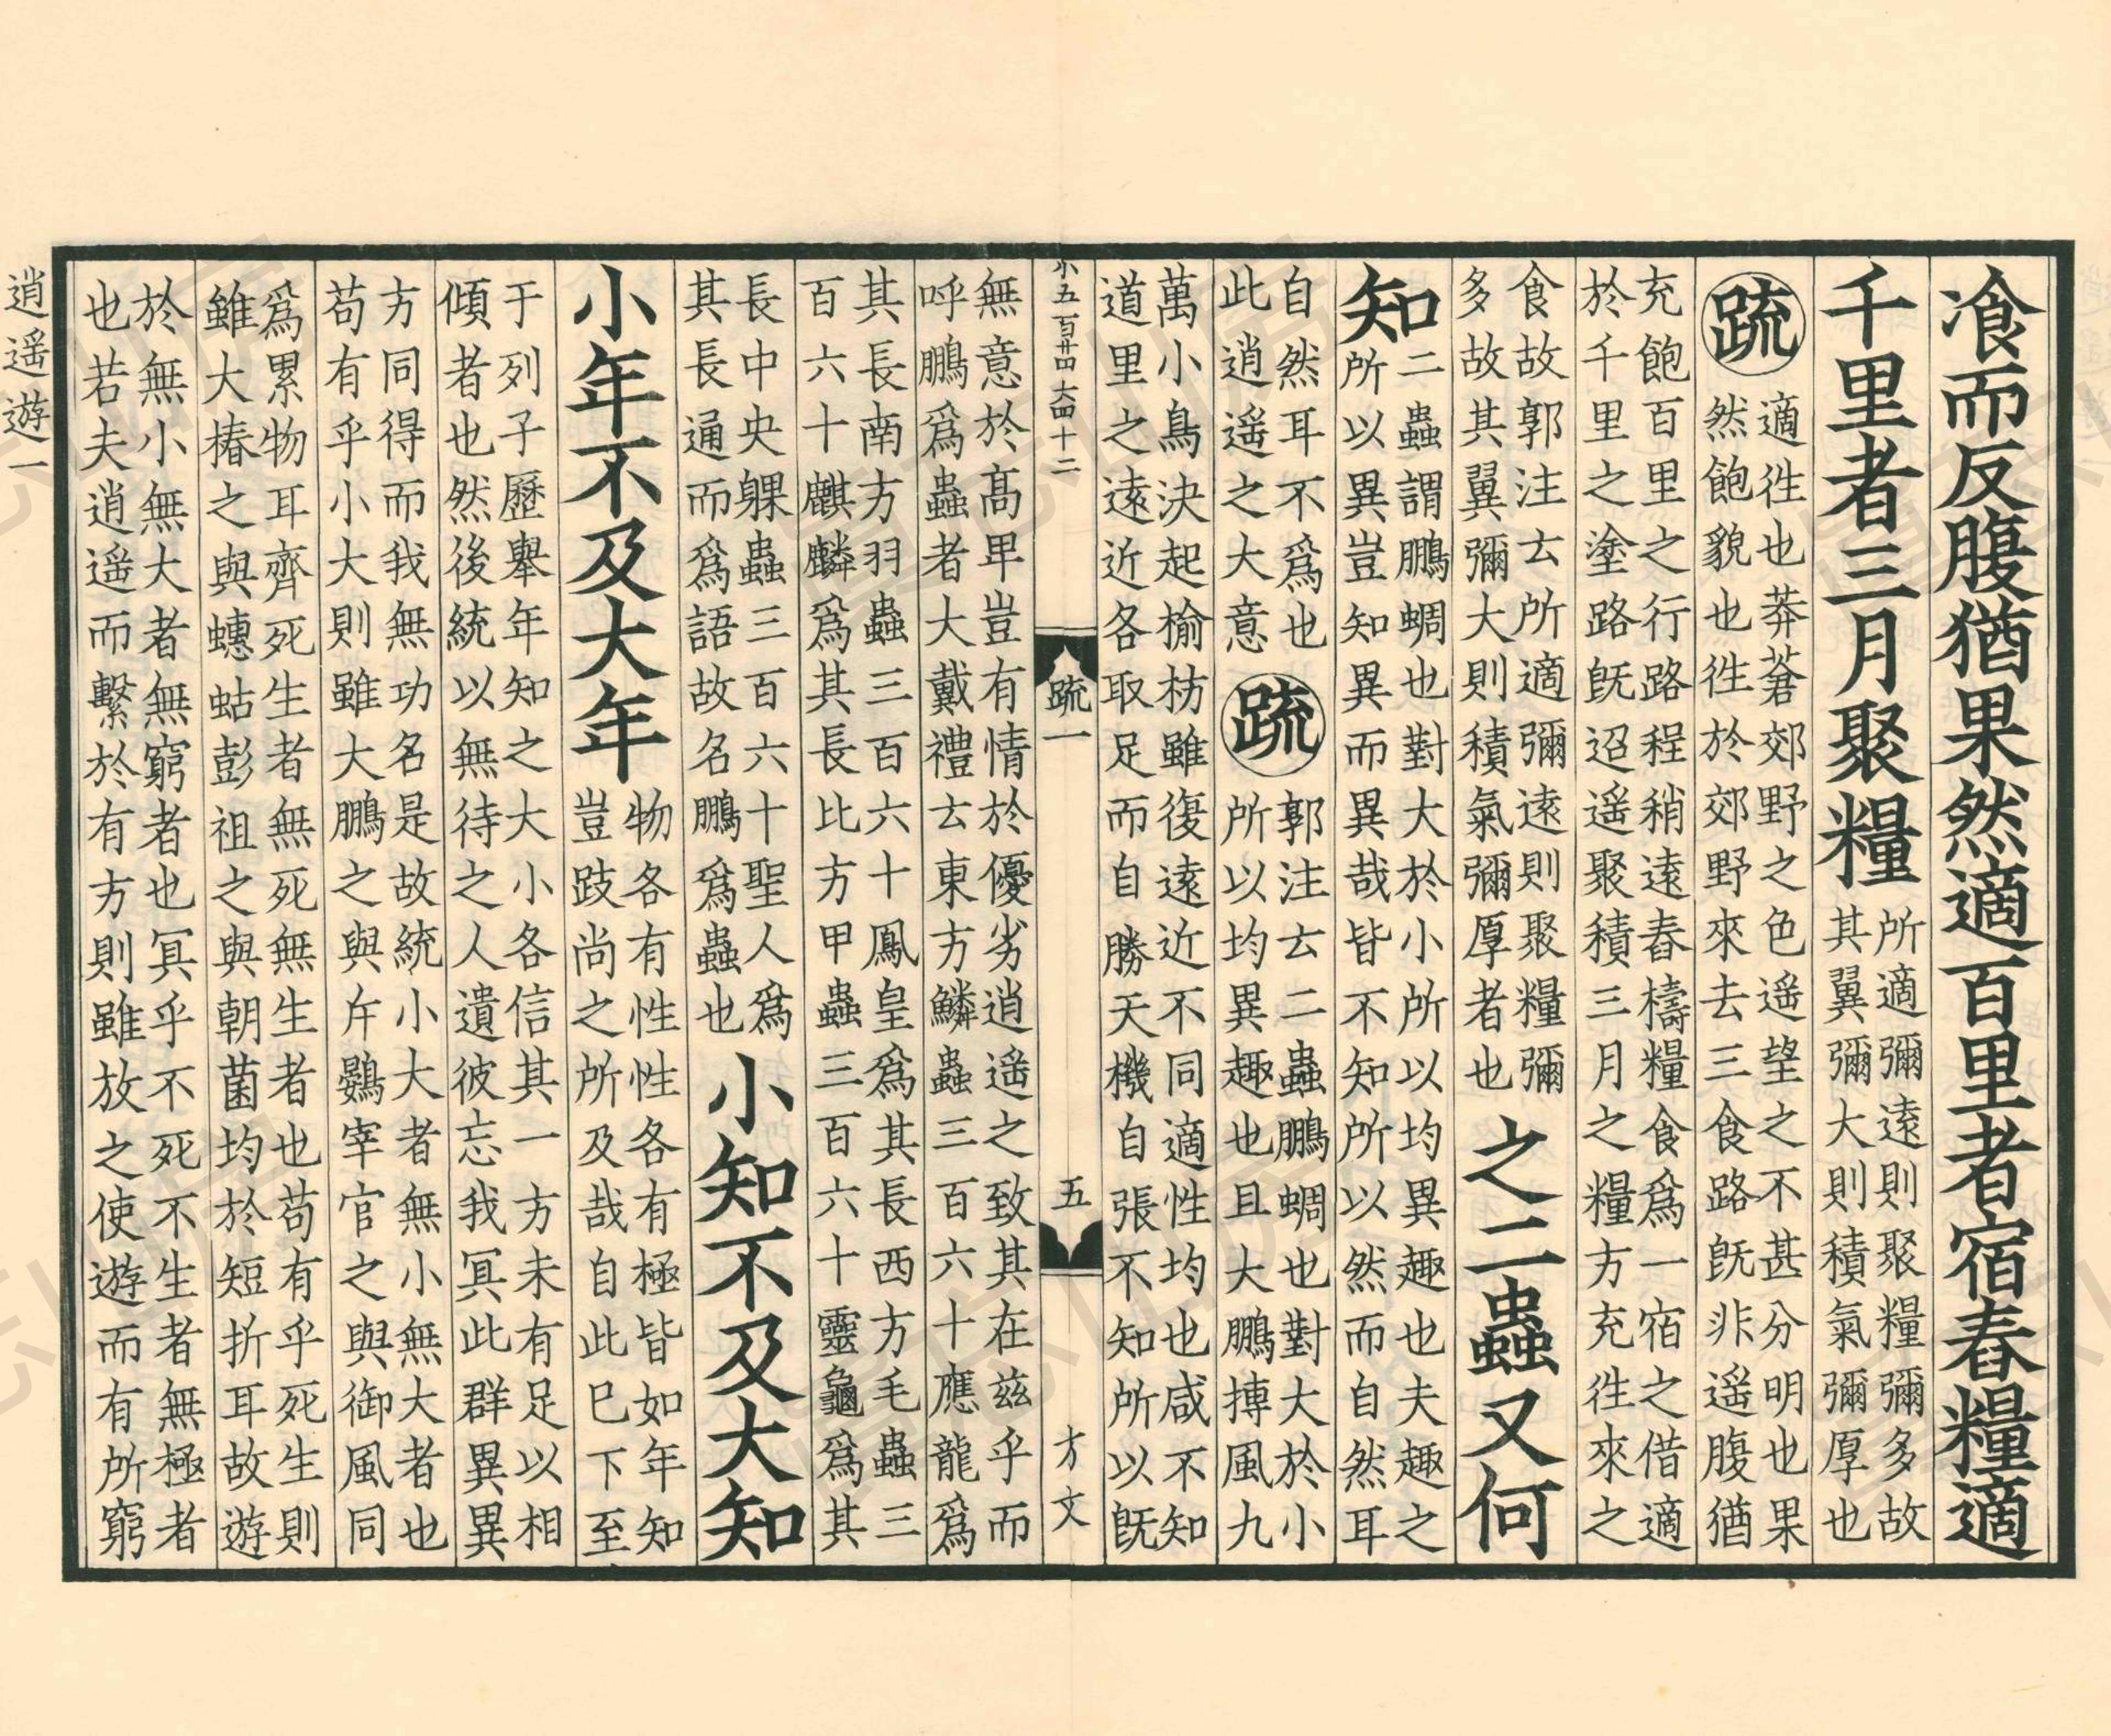 飡而反腹猶果然適百里者宿舂糧適
千里者三月聚糧
所適彌遠則聚糧彌多故
其翼彌大則積氣彌厚也
疏
適徃也莽蒼郊野之色遥望之不甚分明也果
然飽貌也徃於郊野來去三食路旣非遥腹猶
充飽百里之行路程稍遠舂擣糧食爲一宿之借適
於千里之塗路旣迢遥聚積三月之糧方充徃來之
食故郭注云所適彌遠則聚糧彌
多故其翼彌大則積氣彌厚者也
之二蟲又何
知
二蟲謂鵬蜩也對大於小所以均異趣也夫趣之
所以異豈知異而異哉皆不知所以然而自然耳
自然耳不爲也
此逍遥之大意
疏
郭注云二蟲鵬蜩也對大於小
所以均異趣也且大鵬摶風九
萬小鳥決起榆枋雖復遠近不同適性均也咸不知
道里之遠近各取足而自勝天機自張不知所以旣
小五百廿四大四十二
疏一
五
方文
無意於髙卑豈有情於優劣逍遥之致其在兹乎而
呼鵬爲蟲者大戴禮云東方鱗蟲三百六十應龍爲
其長南方羽蟲三百六十鳳皇爲其長西方毛蟲三
百六十麒麟爲其長比方甲蟲三百六十靈龜爲其
長中央躶蟲三百六十聖人爲
其長通而爲語故名鵬爲蟲也
小知不及大知
小年不及大年
物各有性性各有極皆如年知
豈跂尚之所及哉自此巳下至
于列子歷舉年知之大小各信其一方未有足以相
傾者也然後統以無待之人遺彼忘我冥此群異異
方同得而我無功名是故統小大者無小無大者也
苟有乎小大則雖大鵬之與斥鷃宰官之與御風同
爲累物耳齊死生者無死無生者也苟有乎死生則
雖大椿之與蟪蛄彭祖之與朝菌均於短折耳故遊
於無小無大者無窮者也冥乎不死不生者無極者
也若夫逍遥而繫於有方則雖放之使遊而有所窮
逍遥遊一